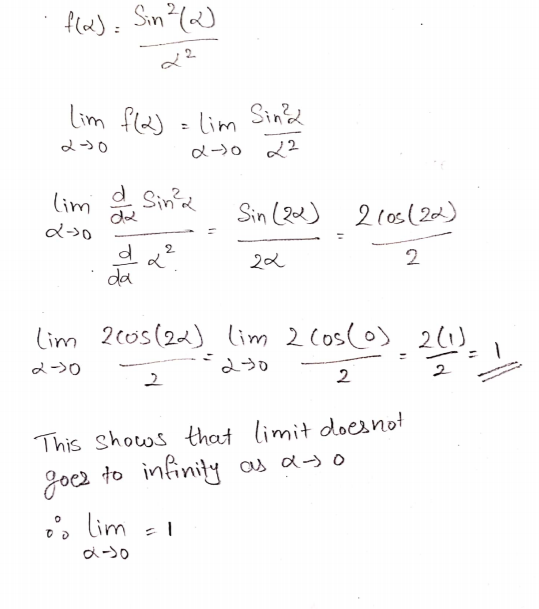 f(α) = Sin²(α) / α²
lim α→0 f(α) = lim α→0 Sin²α / α²
lim α→0 d/dα Sin²α / d/dα α² = Sin(2α) / 2α = 2cos(2α) / 2
lim α→0 2cos(2α) / 2 = lim α→0 2 Cos(0) / 2 = 2(1) / 2 = 1
This shows that limit doesnot
goes to infinity as α→0
∴ lim α→0 = 1